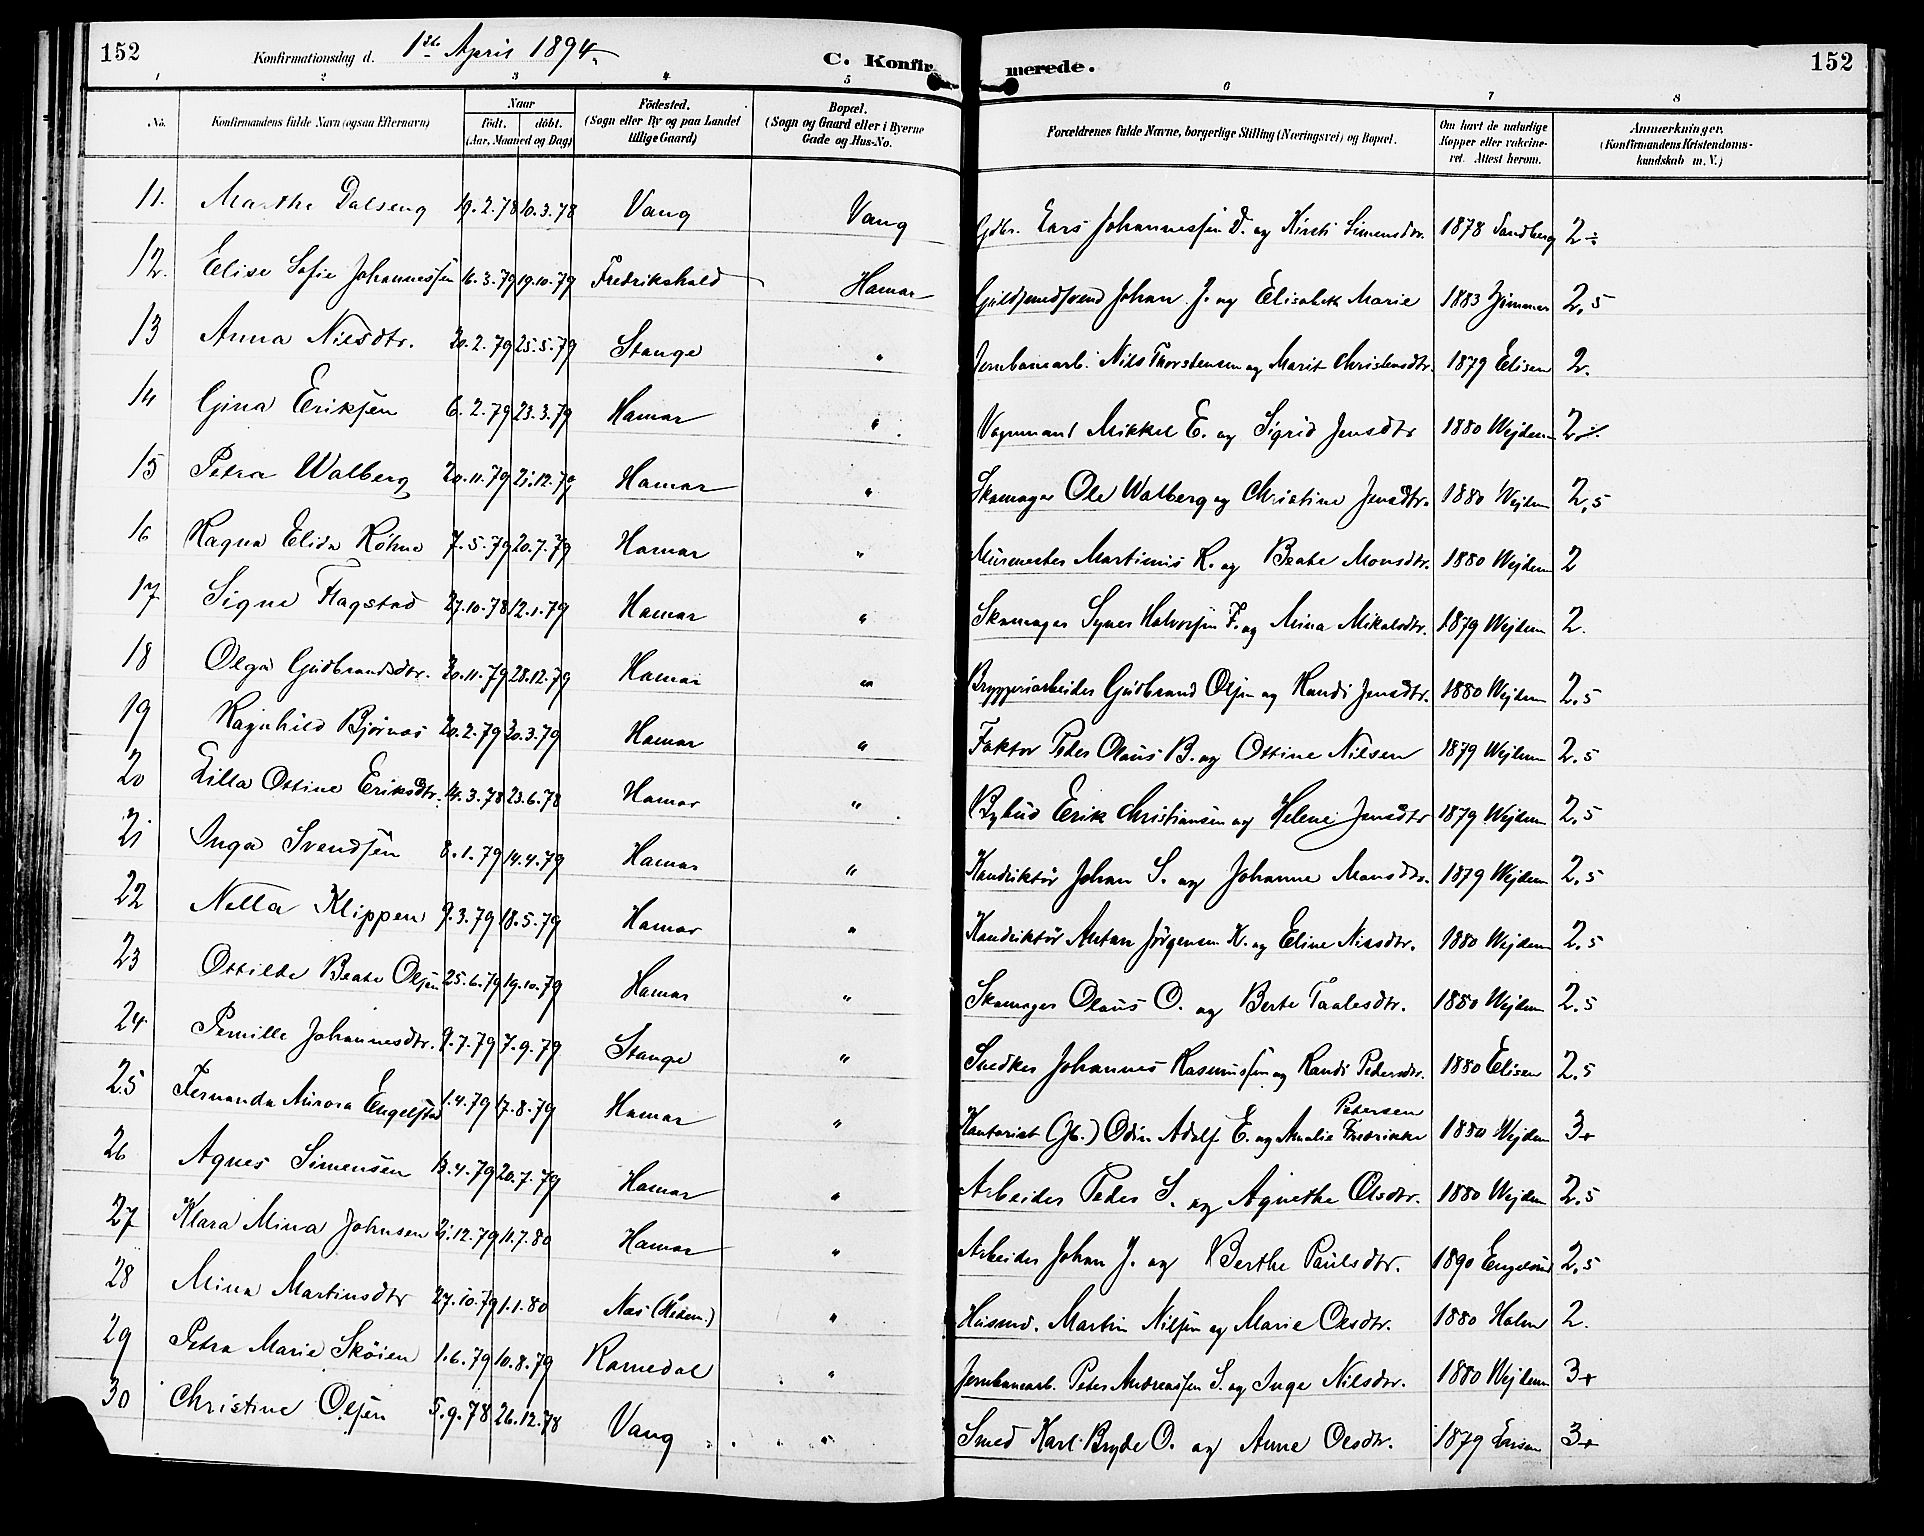 152 Konfirmationsdag d. 1ste April 1894. C. Konfirmerede. 152
1 2 3 4 5 6 7 8
No. Konfirmandens fulde Navn (ogsaa Efternavn) Naar født. døbt. (Aar, Maaned og Dag) Fødested. (Sogn eller By og paa Landet tillige Gaard) Bopæl. (Sogn og Gaard eller i Byerne Gade og Hus-No. Forældrenes fulde Navne, borgerlige Stilling (Næringsvei) og Bopæl. Om havt de naturlige Kopper eller vakcineret. Attest herom. Anmærkninger. (Konfirmandens Kristendomskundskab m. V.)
11. Marthe Dalseng 19.2.78 10.3.78 Vang Vang Gdbr. Lars Johannessen D. og Kirsti Simensdtr. 1878 Sandberg 2÷
12. Elise Sofie Johannessen 16.3.79 19.10.79 Fredrikshald Hamar Guldsmedsvend Johan J. og Elisabeth Marie 1883 Zimmer 2,5
13 Anna Nilsdtr. 20.2.79 25.5.79 Stange " Jernbanearb. Nils Thorstensen og Marit Christensdtr. 1879 Elisen 2.
14 Gina Eriksen 6.2.79 23.3.79 Hamar " Vognmand Mikkel E. og Sigrid Jensdtr 1880 Wejdem 2÷
15 Petra Walberg 20.11.79 21.12.79 Hamar " Skomager Ole Walberg og Christine Jensdtr. 1880 Wejdem 2,5
16 Ragna Elida Röhne 7.5.79 20.7.79 Hamar " Murmester Martinius R. og Beate Monsdtr. 1880 Wejdem 2
17 Signe Flagstad 27.10.78 12.1.79 Hamar " Skomager Syver Halvorsen F. og Mina Mikalsdtr. 1879 Wejdem 2.
18 Olga Gudbrandsdtr. 20.11.79 28.12.79 Hamar " Bryggeriarbeider Gudbrand Olsen og Randi Jensdtr. 1880 Wejdem 2,5
19 Ragnhild Bjørnas 20.2.79 30.3.79 Hamar " Faktor Peder Olaus B. og Ottine Nilsen 1879 Wejdem 2,5
20 Lilla Ottine Eriksdtr. 14.3.78 23.6.78 Hamar " Bybud Erik Christiansen og Helene Jensdtr 1879 Wejdem 2,5
21 Inga Svendsen 8.1.79 14.4.79 Hamar " Konduktør Johan S. og Johanne Monsdtr. 1879 Wejdem 2,5
22 Nella Klippen 9.3.79 18.5.79 Hamar " Konduktør Anton Jørgensen K. og Eline Nilsdtr. 1880 Wejdem 2,5
23 Ottilde Beate Olsen 25.6.79 19.10.79 Hamar " Skomager Olaus O. og Berte Paalsdtr. 1880 Wejdem 2,5
24 Pernille Johannesdtr. 9.7.79 7.9.79 Stange " Snedker Johannes Rasmussen og Randi Pedersdtr. 1880 Elisen 2,5
25 Fernanda Aurora Engelstad 1.4.79 17.8.79 Hamar " Kontorist (Gb.) Odin Adolf E. og Amalie Fredrikke Petersen 1880 Wejdem 3+
26 Agnes Simensen 13.4.79 20.7.79 Hamar " Arbeider Peder S. og Agnethe Olsdtr. 1880 Wejdem 2,5
27 Klara Mina Johnsen 21.12.79 11.7.80 Hamar " Arbeider Johan J. og Berthe Paulsdtr. 1890 Engelund 2,5
28 Mina Martinsdtr 27.10.79 1.1.80 Næs (Hedem.) " Husmd. Martin Nilsen og Marie Olsdtr. 1880 Holm 2.
29 Petra Marie Skøien 1.6.79 10.8.79 Romedal " Jernbanearb. Peter Andreassen S. og Inge Nilsdtr. 1880 Wejdem 3+
30 Christine Olsen 5.9.78 26.12.78 Vang " Smed Karl Bryde O. og Anne Olsdtr. 1879 3+